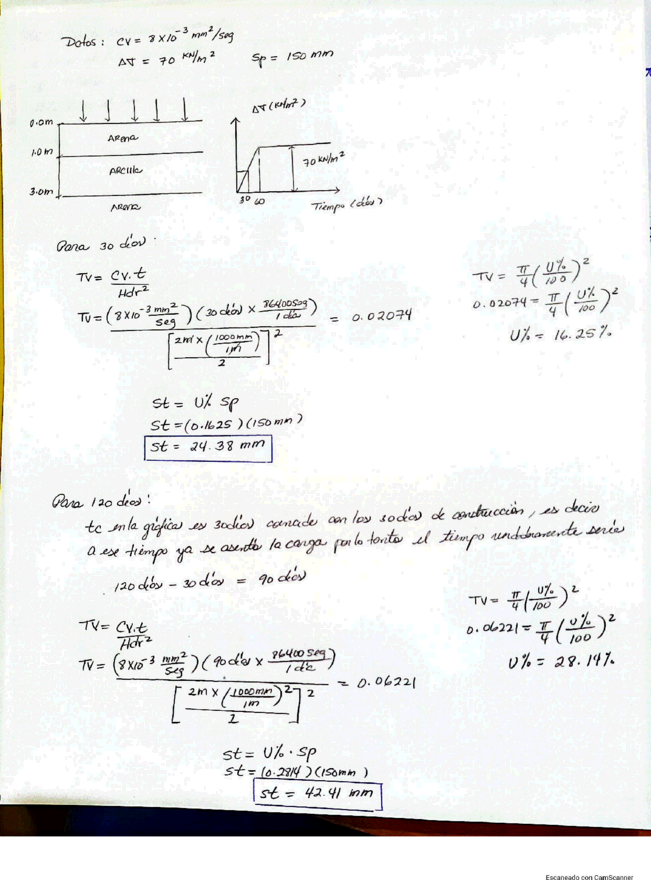 Datos: Cv = 8x10⁻³ mm²/seg
Δσ = 70 KN/m² Sp = 150 mm
Δσ (KN/m²)
0.0m
Arena
1.0m
Arcilla
70 KN/m²
3.0m
Arena
30 60
Tiempo (días)
Para 30 días:
Tv = Cv.t / Hdr²
Tv = (8x10⁻³ mm²/seg)(30 días x 86400seg/1 día) / [2m x (1000mm/1m) / 2]² = 0.02074
Tv = π/4 (U%/100)²
0.02074 = π/4 (U%/100)²
U% = 16.25%
St = U% Sp
St = (0.1625)(150mm)
St = 24.38 mm
Para 120 días:
tc en la gráfica es 30días coincide con los 30 días de construcción, es decir
a ese tiempo ya se asentó la carga por lo tanto el tiempo sería
120 días - 30 días = 90 días
Tv = Cv.t / Hdr²
Tv = (8x10⁻³ mm²/seg)(90 días x 86400seg/1 día) / [2m x (1000mm/1m)² / 2]² = 0.06221
Tv = π/4 (U%/100)²
0.06221 = π/4 (U%/100)²
U% = 28.14%
St = U% · Sp
St = (0.2814)(150mm)
St = 42.41 mm
Escaneado con CamScanner